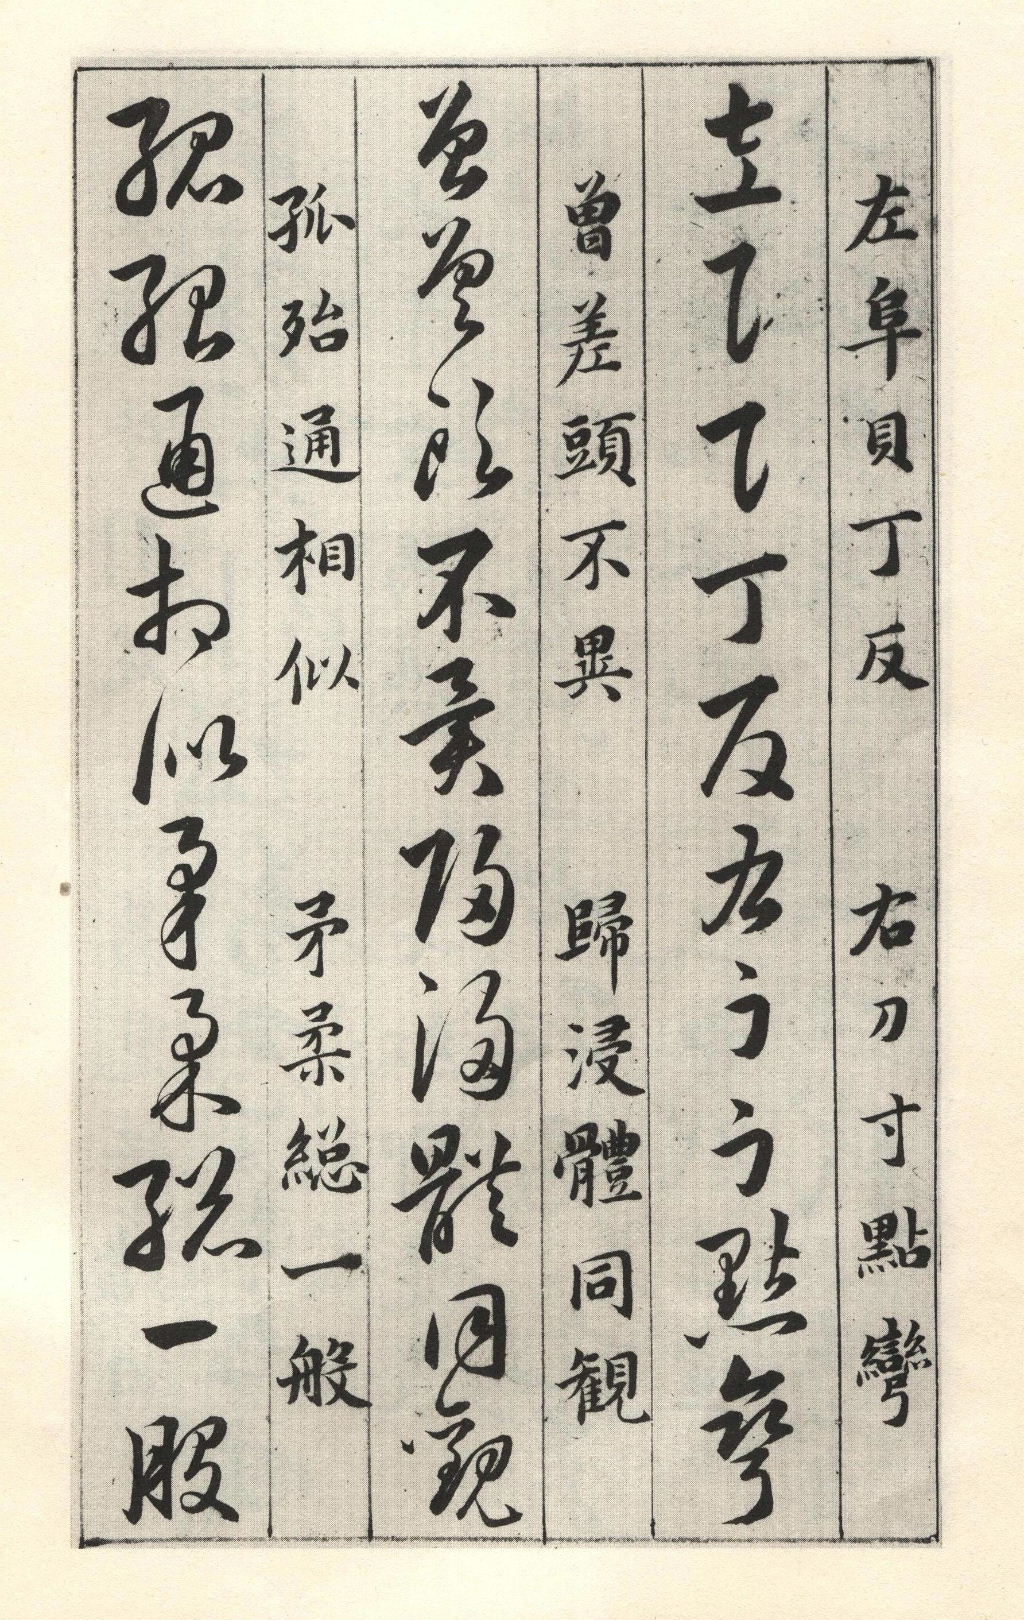 左阜貝丁反　右刀寸點彎
左阜貝丁反右刀寸點彎
曾差頭不異　歸浸體同観
曾差頭不異歸浸體同觀
孤殆通相似　矛柔総一般
孤殆通相似矛柔總一般